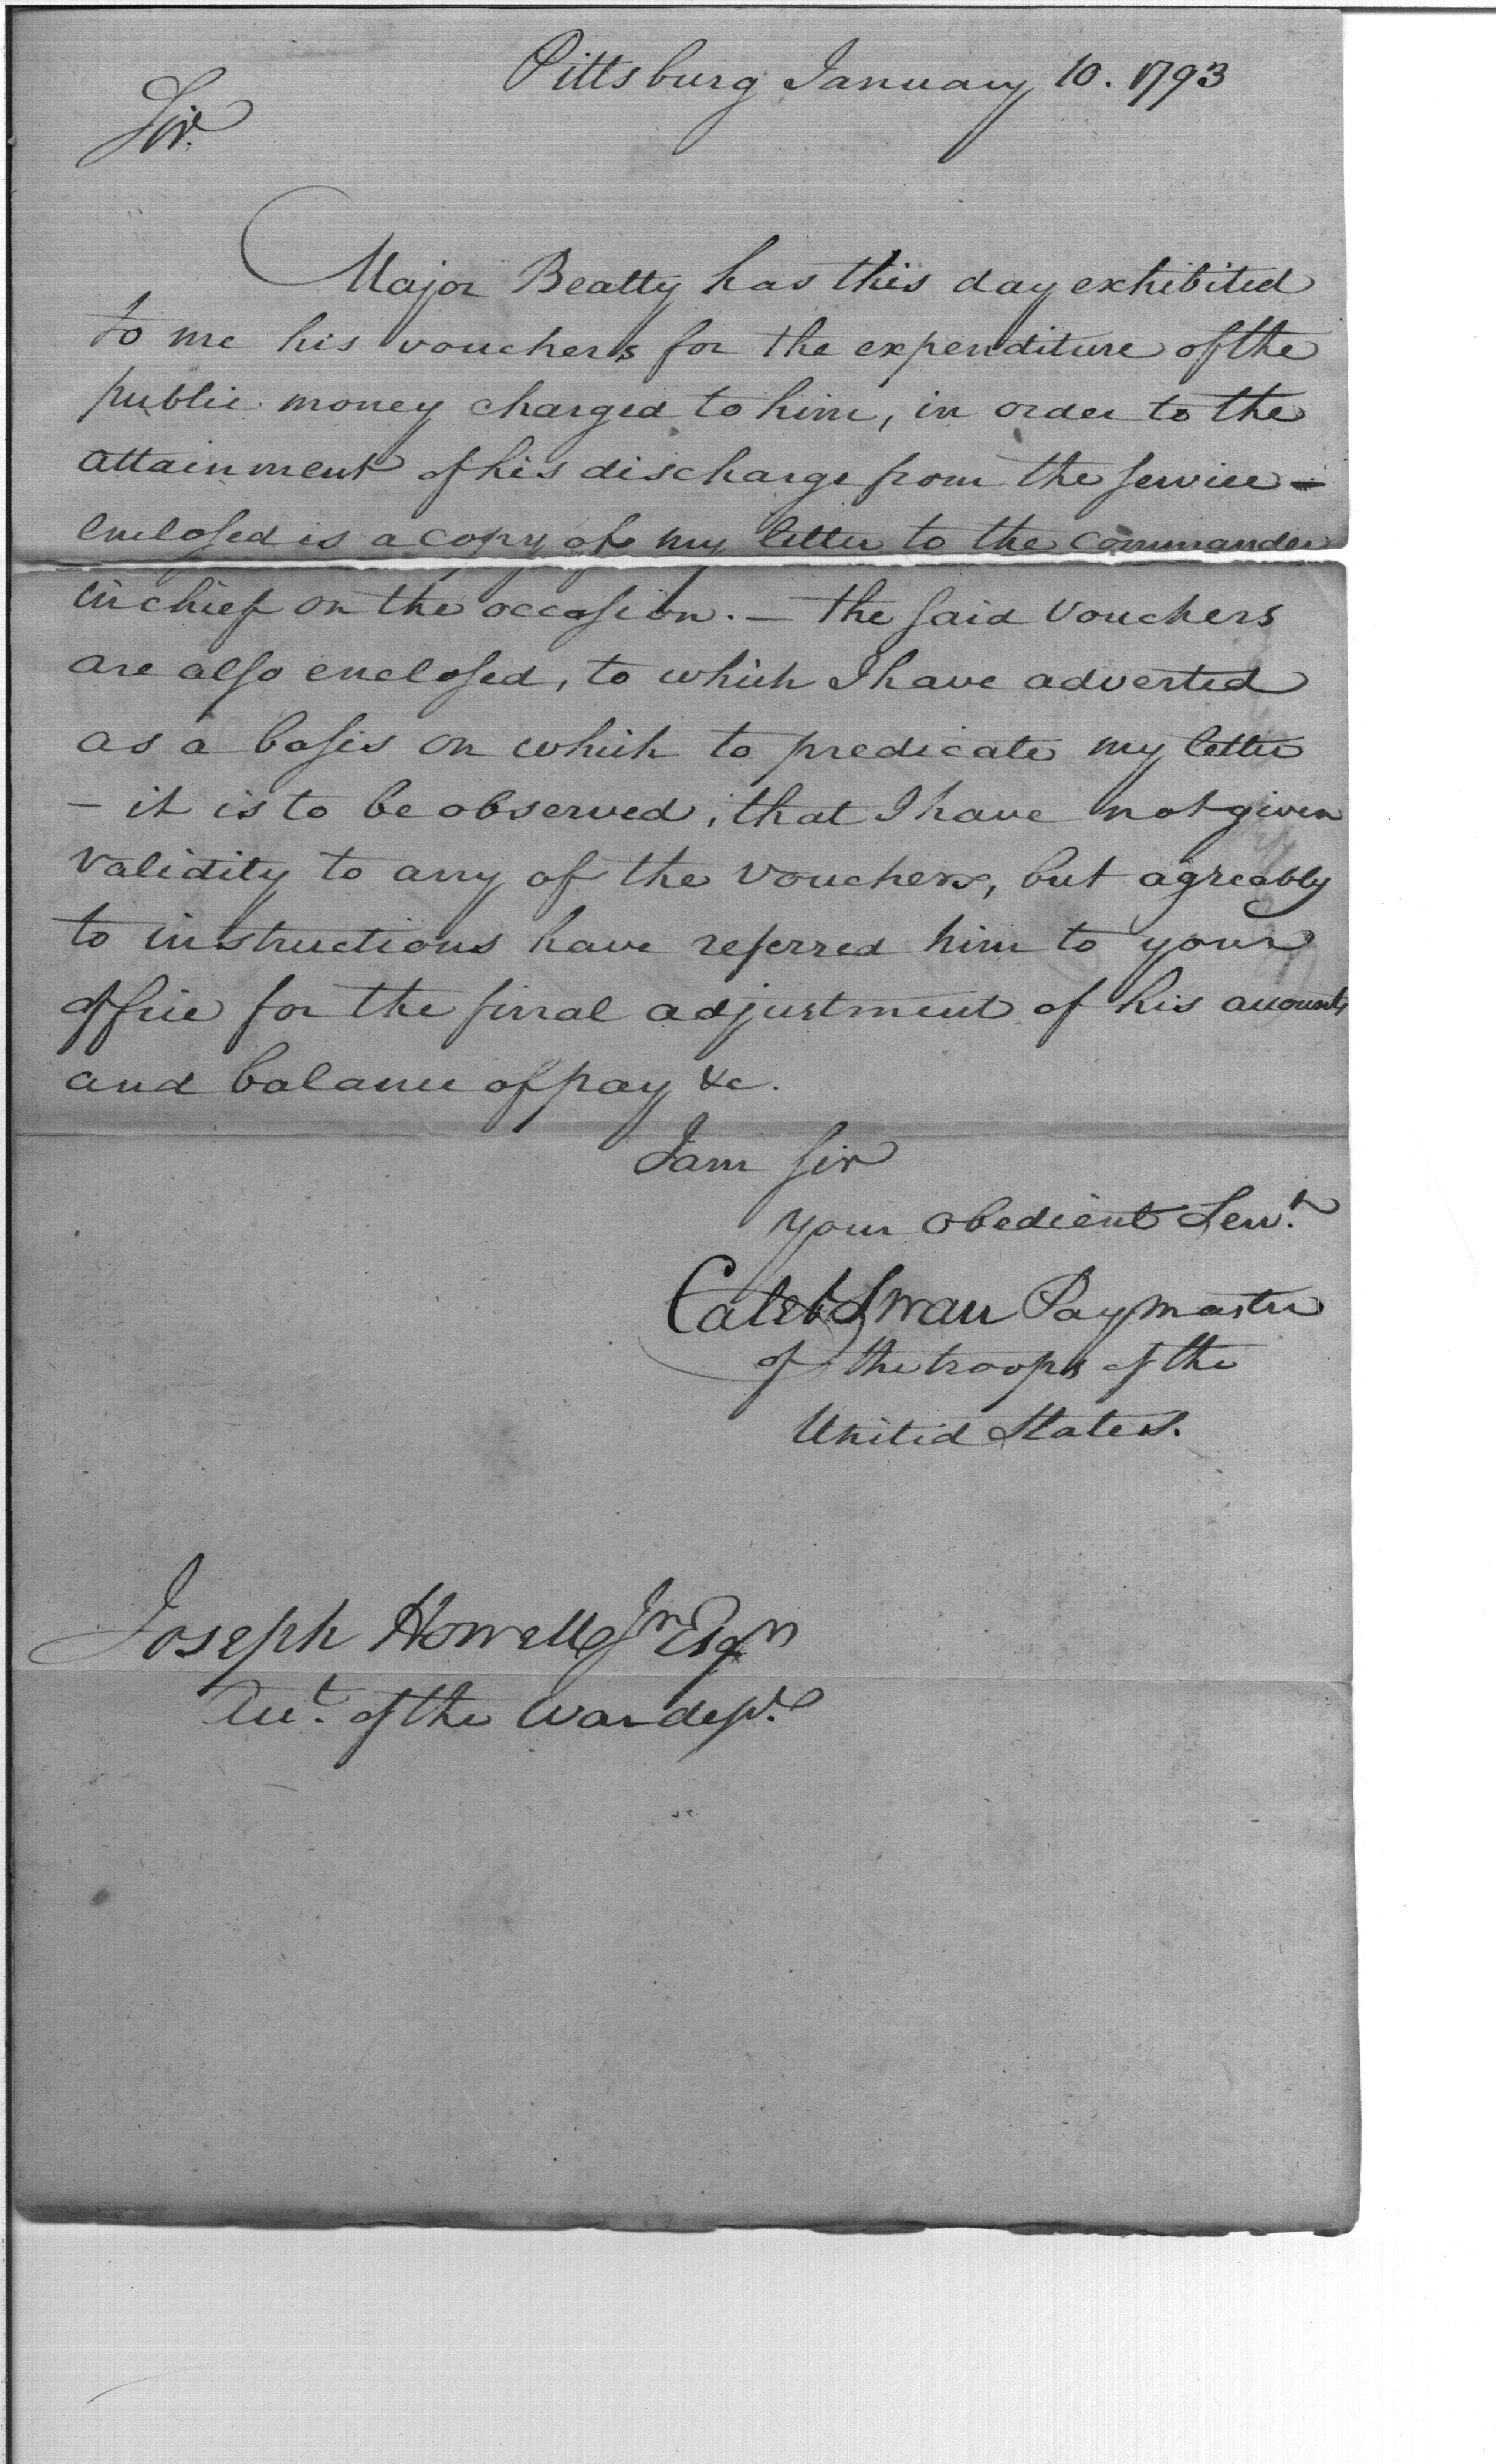 Pittsburg January 10. 1793
Sir.
Major Beatty has this day exhibited
to me his vouchers for the expenditure of the
public money charged to him, in order to the
attainment of his discharge from the service –
enclosed is a copy of my letter to the commander
in chief on the occasion. – the said vouchers
are also enclosed, to which I have adverted
as a basis on which to predicate my letter
– it is to be observed, that I have not given
validity to any of the vouchers, but agreably
to instructions have referred him to your
office for the final adjustment of his accounts
and balance of pay &c.
I am sir
your obedient Servt.
Caleb Swan Paymaster
of the troops of the
United States.
Joseph Howell Jnr Esqr
Acct. of the War dept.